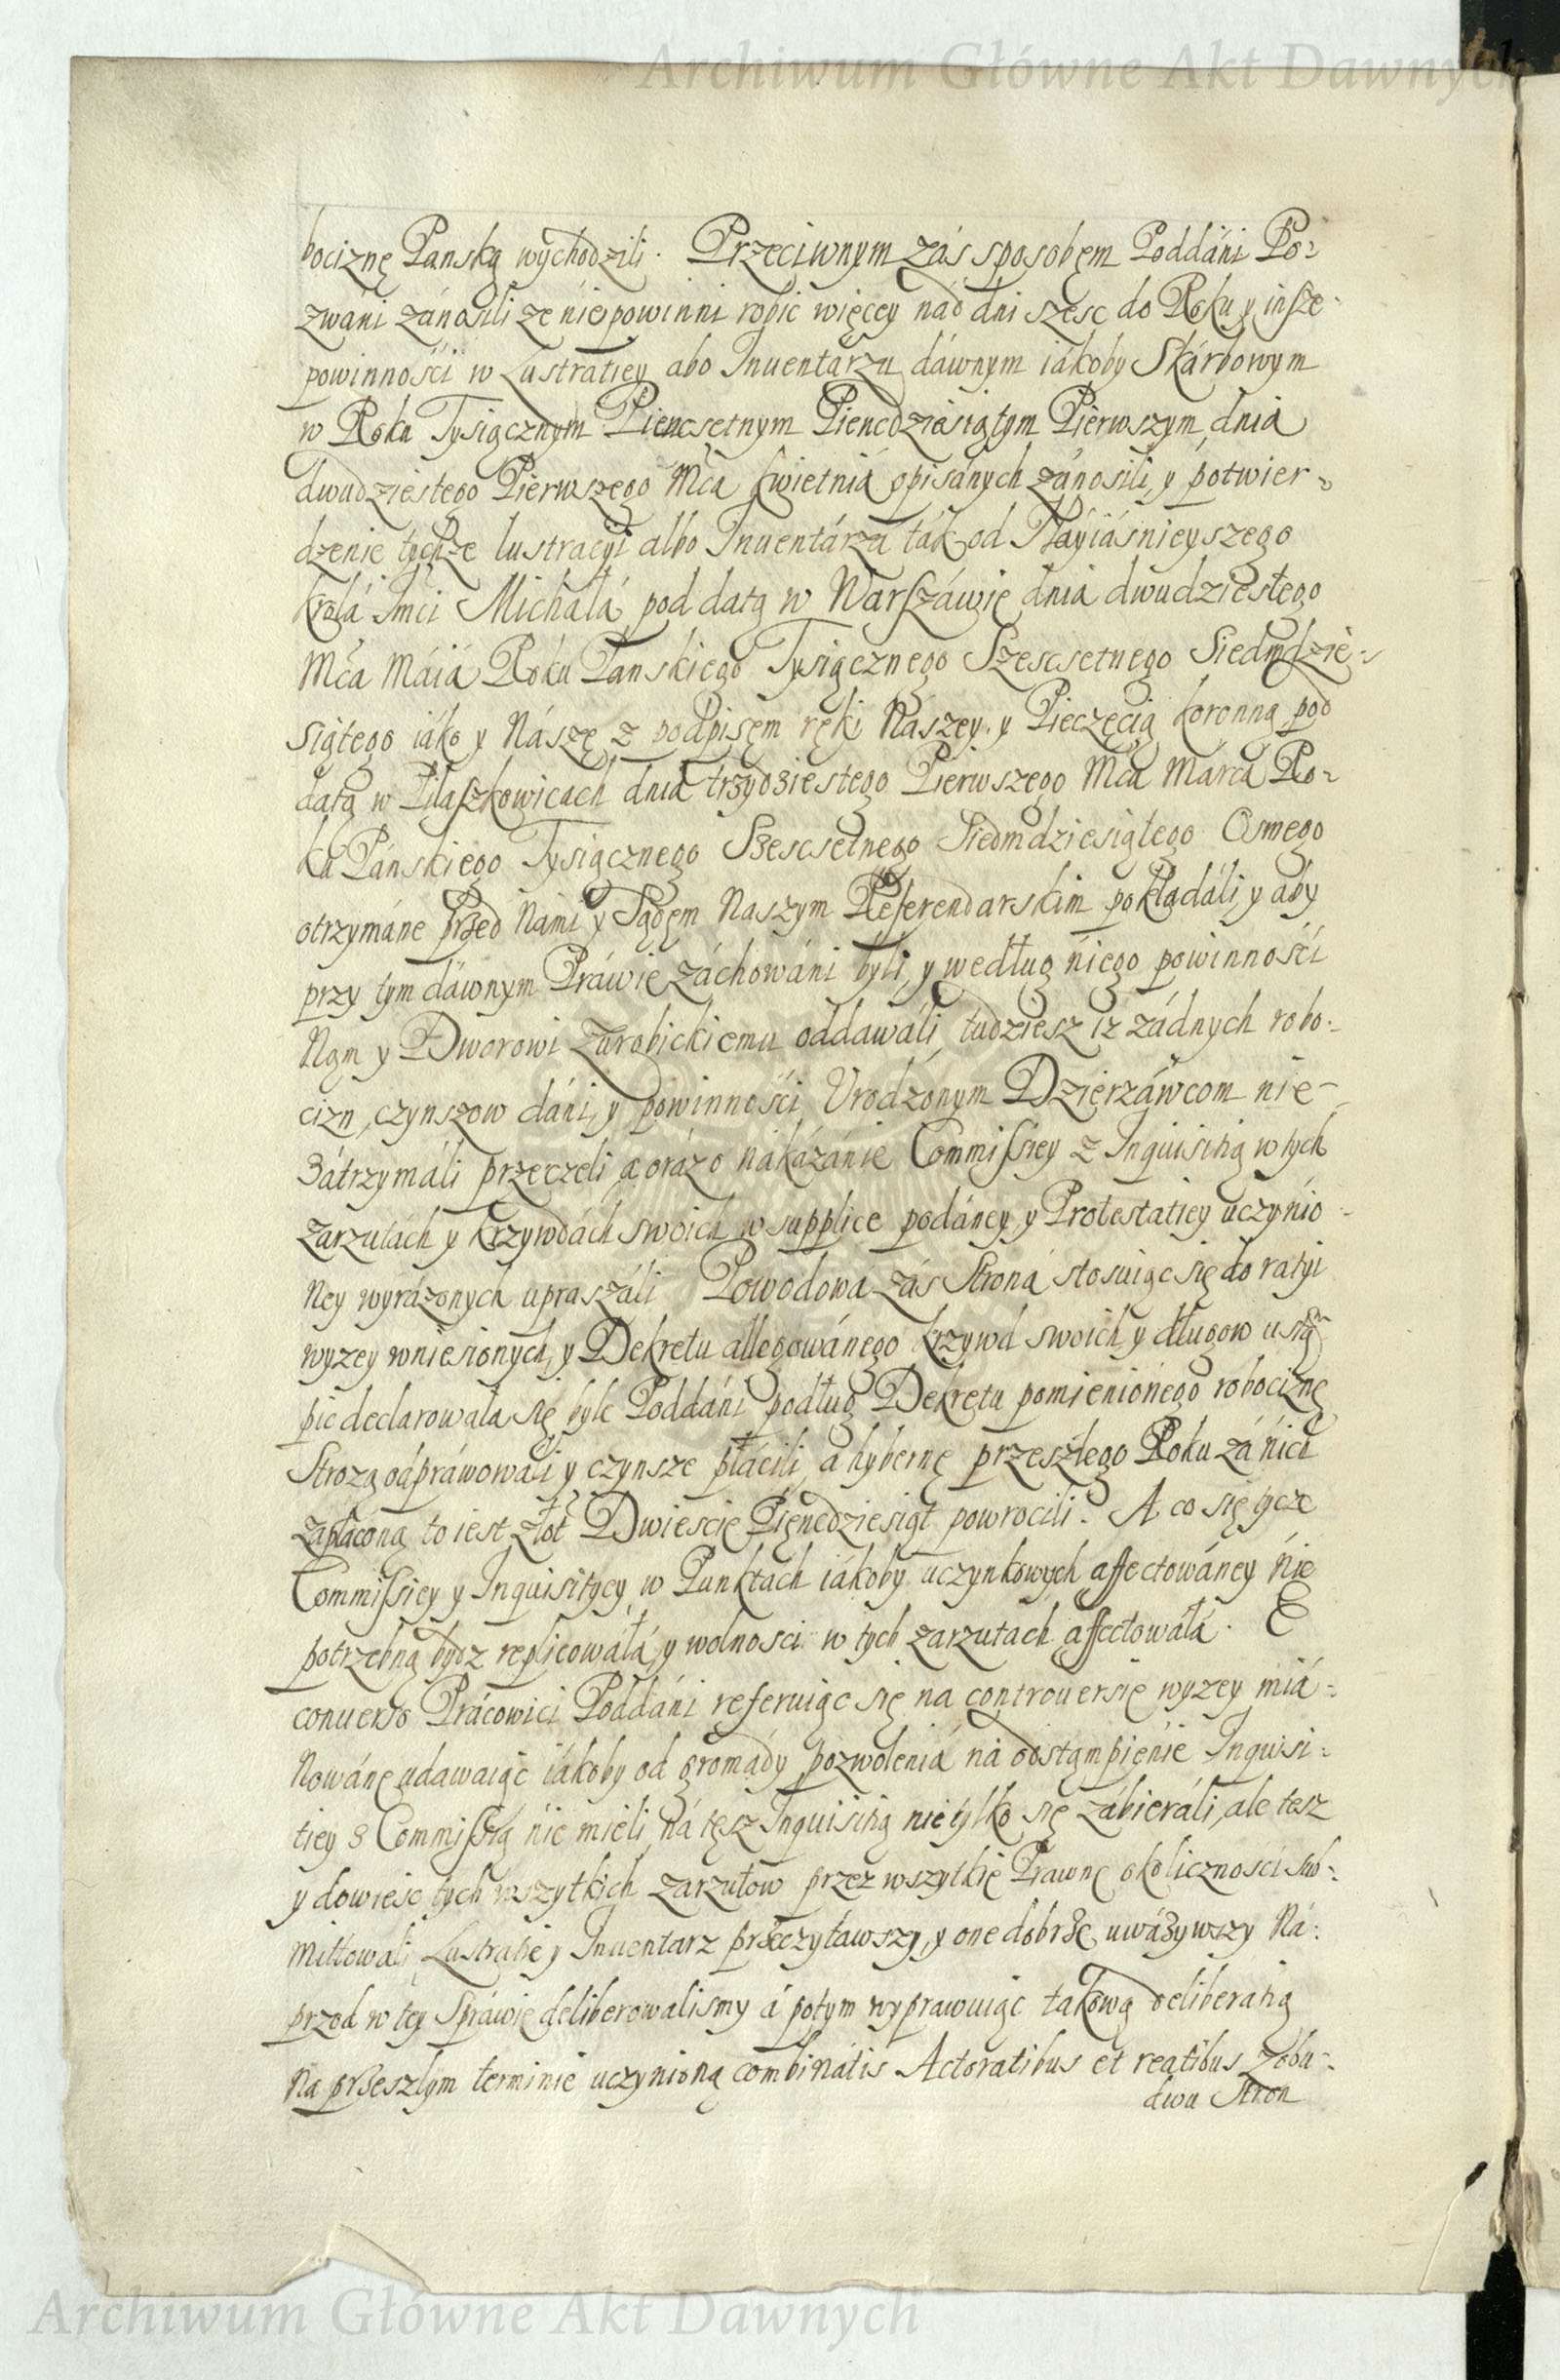 Archiwum Główne Akt Dawnych
bociznę Panską wychodzili. Przeciwnym zás sposobęm Poddáni Po-
zwáni zánosili ze niepowinni robić więcey nád dni szesc do Roku y insze
powinnośći w Lustratiey abo Inuentárzu dáwnym iákoby Skárbowym
w Roku Tysiącznym Piencsetnym Piencdziesiątym Pierwszym dnia
dwudziestego Pierwszego Mca kwietniá opisánych zánosili, y potwier-
dzenie tychże lustracyi albo Inuentárzá ták od Nayiásnieyszego
krolá Jmci Michałá pod datą w Warszáwię dnia dwudziestego
Mca Máiá Roku Panskiego Tysiącznego Szescsetnego Siedmdzie-
siątego iáko y Násze z podpisęm ręki Naszey y Pieczęcią koronną pod
datą w Pilaszkowicach dniá trzydziestego Pierwszego Mca Marca Ro-
ku Pánskiego Tysiącznego Szescsetnego Siedmdziesiątego Osmego
otrzymáne przed Nami y Sądęm Naszym Referendarskim pokłádáli, y aby
przy tym dáwnym Práwie záchowáni byli, y według niego powinnośći
Nąm y Dworowi zarobickiemu oddawáli, tudziesz iz żádnych robo-
cizn, czynszow dáni, y powinnośći Vrodzonym Dzierzáwcom nie-
zátrzymáli przeczeli a orázo nákázánie Commissiey z Inquisitią w tych
zarzutách y krzywdách swoich w supplice podáney y Protestatiey uczynio-
ney wyráżonych upraszáli Powodowá zás Stroná stosuiąc się do ratyi
wyzey wniesionych, y Dekretu allegowánego krzywd swoich y długow ustą
pic declarowała się byle Poddáni podług Dekretu pomienionego robociznę
Strozą odpráwowali y czynsze płácili, a hybernę przeszłego Roku zá nich
zapłáconą to iest złot Dwiescię Pięncdziesiąt powrocili. A co się tycze
Commissiey y Inquisitycy w Punktach iákoby uczynkowych affectowáney nie
potrzebną bydz replicowáłá, y wolnosci w tych zarzutach affectowáłá. E
conuerso Prácowici Poddáni referuiąc się na controuersię wyzey miá-
nowánę udawaiąc iákoby od gromády pozwolenia ná odstąmpienie Inquisi-
tiey s Commissią nie mieli, ná tęsz Inquisitią nie tylko się zábieráli, ale tesz
y dowiesc tych wszytkich zarzutow przez wszytkie Prawne okolicznosci sub-
mittowali Lustratię y Inuentarz przeczytawszy, y one dobrze uwáżywszy Na-
przod w tey Spráwie deliberowalismy á potym wyprawuiąc tákową deliberatią
na przeszłym terminie uczynioną combinátis Actoratibus et reatibus zobu-
dwu Stron
Archiwum Główne Akt Dawnych